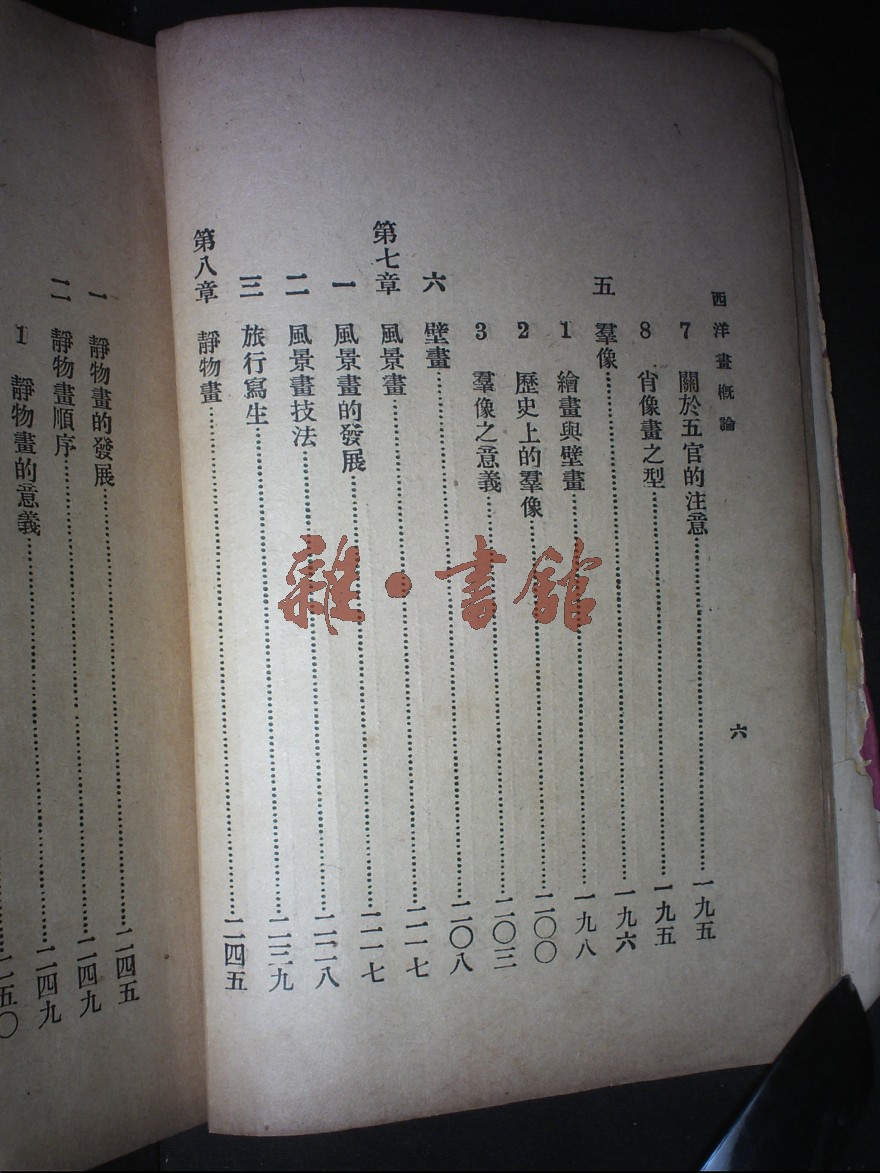 西洋畫概論
六
7 關於五官的注意……一九五
8 肖像畫之型……一九五
五 羣像……一九六
1 繪畫與壁畫……一九八
2 歷史上的羣像……二〇〇
3 羣像之意義……二〇三
六 壁畫……二〇八
第七章 風景畫……二一七
一 風景畫的發展……二一七
二 風景畫技法……二二八
三 旅行寫生……二三九
第八章 靜物畫……二四五
一 靜物畫的發展……二四五
二 靜物畫順序……二四九
1 靜物畫的意義……二四九
二五〇
雜·書館